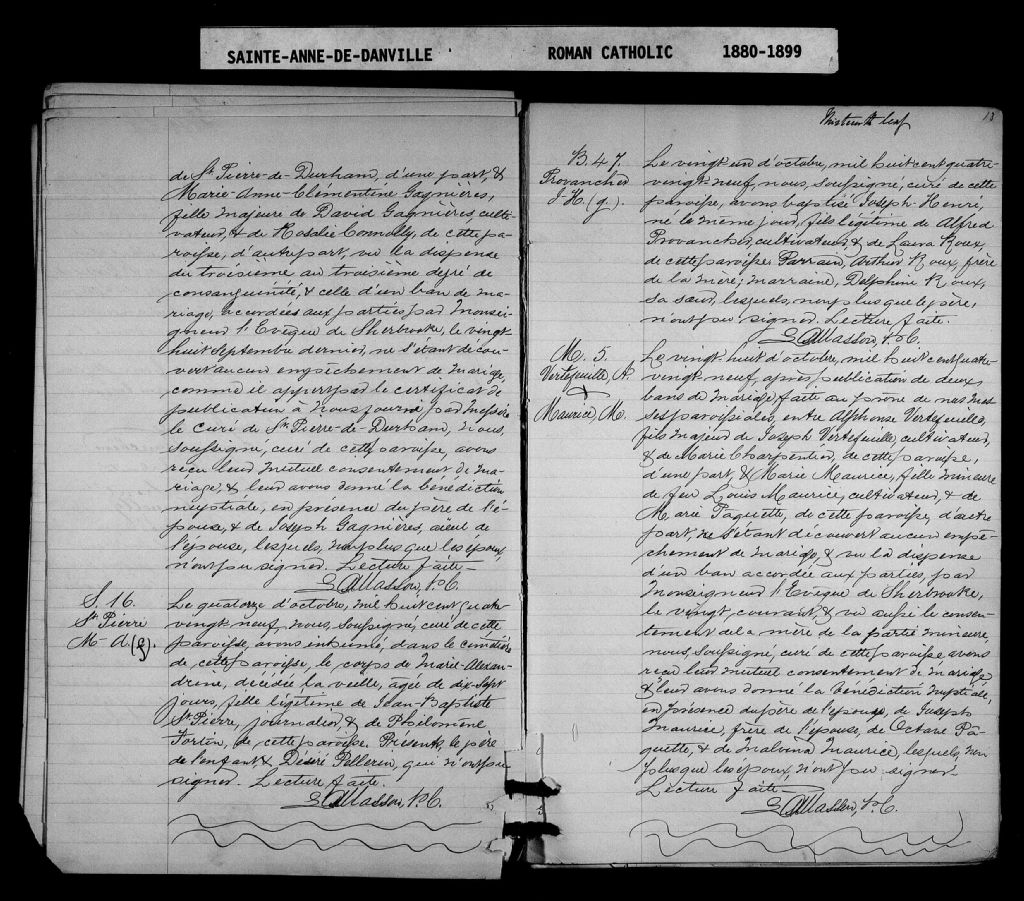 SAINTE-ANNE-DE-DANVILLE ROMAN CATHOLIC 1880-1899
de St Pierre-de-Durham, d'une part, &
Marie-Anne-Clémentine Gagnières,
fille majeure de David Gagnières, culti-
vateur, & de Rosalie Connolly, de cette pa-
roisse, d'autre part, vu la dispense
du troisième au troisième degré de
consanguinité, & celle d'un ban de ma-
riage, accordées aux parties par Monsei-
gneur l'Evêque de Sherbrooke, le vingt-
huit Septembre dernier, ne s'étant décou-
vert aucun empêchement de mariage,
comme il appert par le certificat de
publication à nous fourni par Messire
le Curé de St Pierre-de-Durham, nous,
soussigné, curé de cette paroisse, avons
reçu leur mutuel consentement de ma-
riage, & leur avons donné la bénédiction
nuptiale, en présence du père de l'é-
pouse, & de Joseph Gagnières, aïeul de
l'épouse, lesquels, non plus que les époux,
n'ont pu signer. Lecture faite.
Masson, Ptre C.
S. 16.
St Pierre
M-A. (g).
Le quatorze d'octobre, mil huit cent quatre
vingt neuf, nous, soussigné, curé de cette
paroisse, avons inhumé, dans le cimetière
de cette paroisse, le corps de Marie-Alexan-
drine, décédée la veille, agée de dix-sept
jours, fille légitime de Jean-Baptiste
St Pierre, journalier, & de Philomène
Fortin, de cette paroisse. Présents, le père
de l'enfant & Désiré Pellerin, qui n'ont pu
signer. Lecture faite.
Masson, Ptre C.
thirteenth leaf
13
B. 47.
Provancher
J-H. (g).
Le vingt un d'octobre, mil huit cent quatre-
vingt-neuf, nous, soussigné, curé de cette
paroisse, avons baptisé Joseph Henri,
né le même jour, fils légitime de Alfred
Provancher, cultivateur, & de Laura Roux,
de cette paroisse. Parrain, Arthur Roux, frère
de la mère; marraine, Delphine Roux,
sa sœur, lesquels, non plus que le père,
n'ont pu signer. Lecture faite.
Masson, Ptre C.
M. 5.
Vertefeuille, A.
&
Maurice, M.
Le vingt huit d'octobre, mil huit cent quatre
vingt neuf, après publication de deux
bans de mariage faite au prône de nos mes-
ses paroissiales, entre Alphonse Vertefeuille,
fils majeur de Joseph Vertefeuille, cultivateur,
& de Marie Charpentier, de cette paroisse,
d'une part, & Marie Maurice, fille mineure
de feu Louis Maurice, cultivateur, & de
Marie Paquette, de cette paroisse, d'autre
part, ne s'étant découvert aucun empê-
chement de mariage, & vu la dispense
d'un ban accordée aux parties, par
Monseigneur l'Evêque de Sherbrooke,
le vingt courant, & vu aussi le consen-
tement de la mère de la partie mineure,
nous, soussigné, curé de cette paroisse avons
reçu leur mutuel consentement de mariage
& leur avons donné la bénédiction nuptiale,
en présence du père de l'époux, de Joseph
Maurice, frère de l'épouse, de Octave Pa-
quette, & de Malvina Maurice, lesquels, non
plus que les époux, n'ont pu signer.
Lecture faite.
Masson, Ptre C.